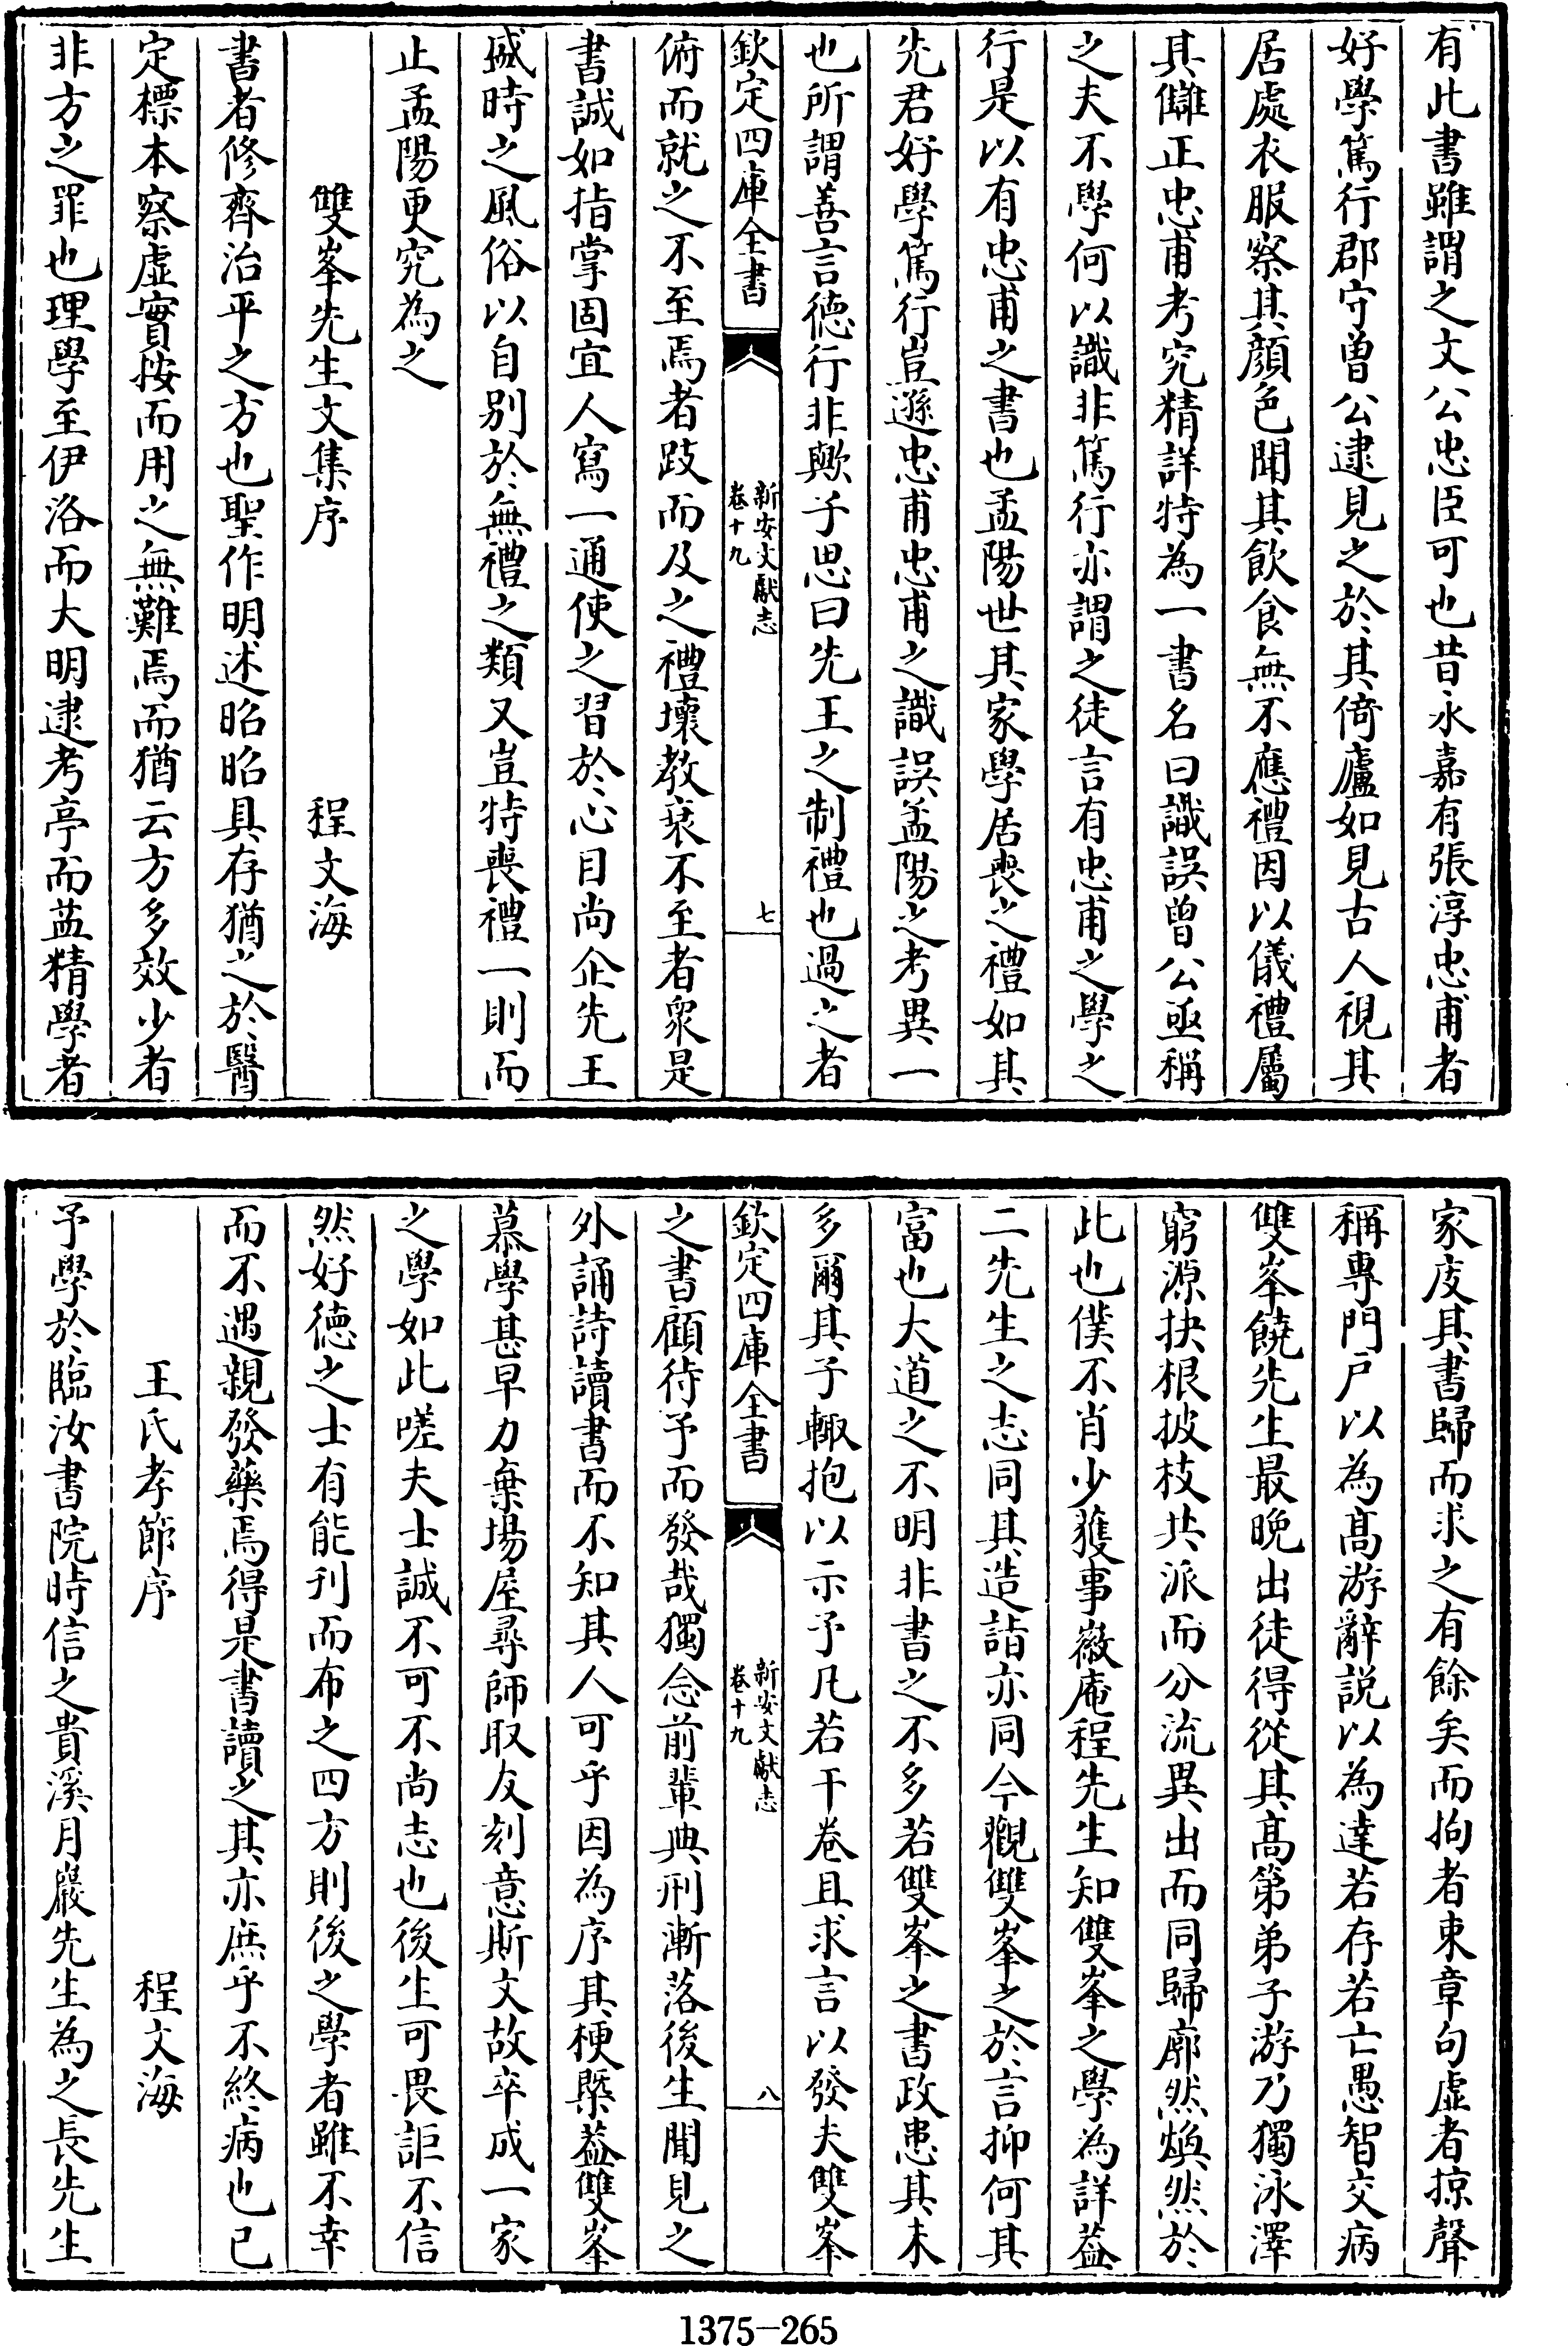 有此書雖謂之文公忠臣可也昔永嘉有張淳忠甫者
好學篤行郡守曾公逮見之於其倚廬如見古人視其
居處衣服察其顔色聞其飲食無不應禮因以儀禮屬
其讎正忠甫考究精詳特為一書名曰識誤曾公亟稱
之夫不學何以識非篤行亦謂之徒言有忠甫之學之
行是以有忠甫之書也孟陽世其家學居喪之禮如其
先君好學篤行豈遜忠甫忠甫之識誤孟陽之考異一
也所謂善言徳行非歟子思曰先王之制禮也過之者
欽定四庫全書
新安文獻志
卷十九
七
俯而就之不至焉者跂而及之禮壞教衰不至者衆是
書誠如指掌固宜人寫一通使之習於心目尚企先王
盛時之風俗以自别於無禮之類又豈特喪禮一則而
止孟陽更究為之
雙峯先生文集序
程文海
書者修齊治平之方也聖作明述昭昭具存猶之於醫
定標本察虚實按而用之無難焉而猶云方多效少者
非方之罪也理學至伊洛而大明逮考亭而益精學者
家庋其書歸而求之有餘矣而拘者束章句虚者掠聲
稱專門户以為髙游辭説以為達若存若亡愚智交病
雙峯饒先生最晩出徒得從其髙第弟子游乃獨泳澤
窮源抉根披枝共派而分流異出而同歸廓然煥然於
此也僕不肖少獲事徽庵程先生知雙峯之學為詳葢
二先生之志同其造詣亦同今觀雙峯之於言抑何其
富也大道之不明非書之不多若雙峯之書政患其未
多爾其子輙抱以示予凡若干卷且求言以發夫雙峯
欽定四庫全書
新安文獻志
卷十九
八
之書顧待予而發哉獨念前軰典刑漸落後生聞見之
外誦詩讀書而不知其人可乎因為序其梗槩葢雙峯
慕學甚早力棄場屋尋師取友刻意斯文故卒成一家
之學如此嗟夫士誠不可不尚志也後生可畏詎不信
然好徳之士有能刋而布之四方則後之學者雖不幸
而不遇親發藥焉得是書讀之其亦庶乎不終病也已
王氏孝節序
程文海
予學於臨汝書院時信之貴溪月巖先生為之長先生
1375-265